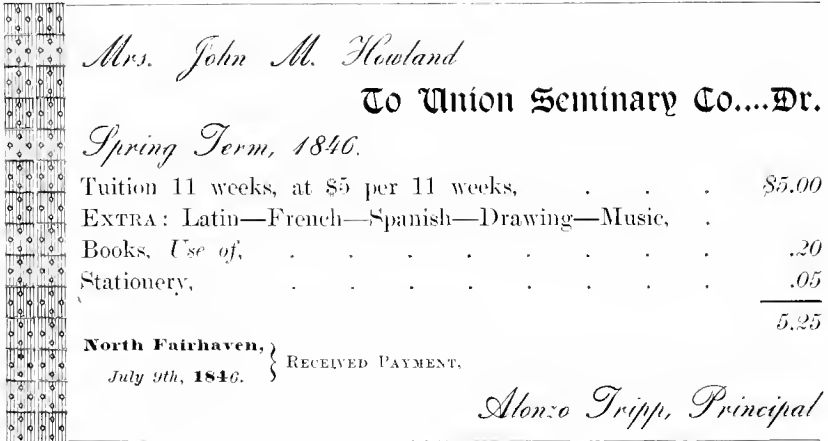 Mrs. John M. Howland
To Union Seminary Co....Dr.
Spring Term, 1846.
Tuition 11 weeks, at $5 per 11 weeks, . . . $5.00
EXTRA: Latin—French—Spanish—Drawing—Music, .
Books, Use of, . . . . . . . .20
Stationery, . . . . . . . .05
5.25
North Fairhaven,
July 9th, 1846. } RECEIVED PAYMENT,
Alonzo Tripp, Principal